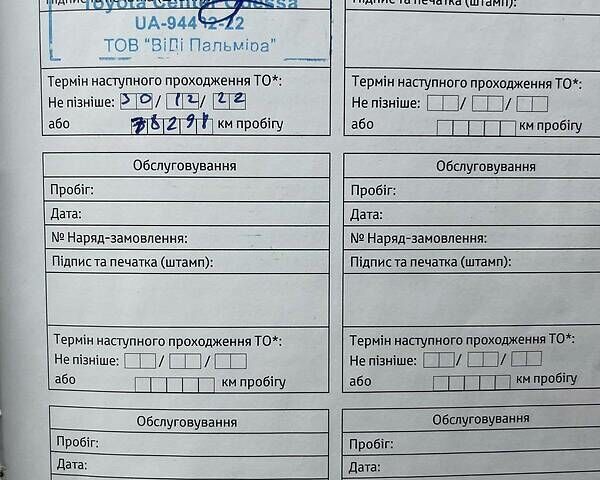 Toyota Center Odessa
UA-94412-22
ТОВ "ВіДі Пальміра"
Підпис та печатка (штамп):
Термін наступного проходження ТО*:
Не пізніше: 30/12/22
або 78291 км пробігу
Термін наступного проходження ТО*:
Не пізніше: / /
або км пробігу
Обслуговування
Пробіг:
Дата:
№ Наряд-замовлення:
Підпис та печатка (штамп):
Термін наступного проходження ТО*:
Не пізніше: / /
або км пробігу
Обслуговування
Пробіг:
Дата:
№ Наряд-замовлення:
Підпис та печатка (штамп):
Термін наступного проходження ТО*:
Не пізніше: / /
або км пробігу
Обслуговування
Пробіг:
Дата:
Обслуговування
Пробіг:
Дата: